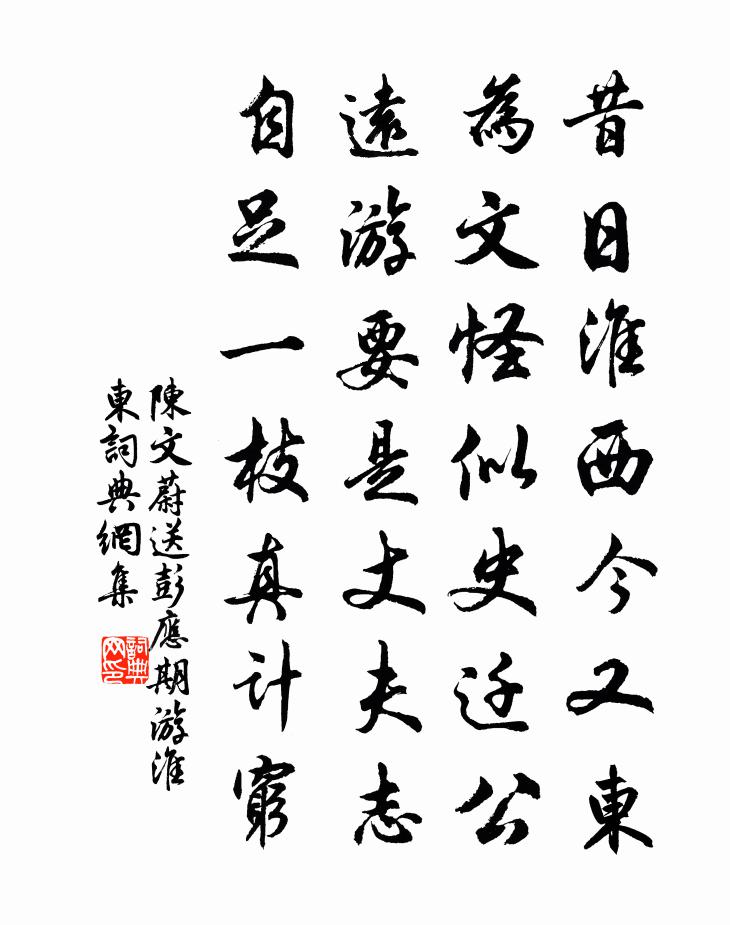 昔日淮西今又東
為文怪似史迁公
遠游要是丈夫志
自足一枝真計窮
陳文蔚送彭應期游淮
東詞典網集
詞典网印